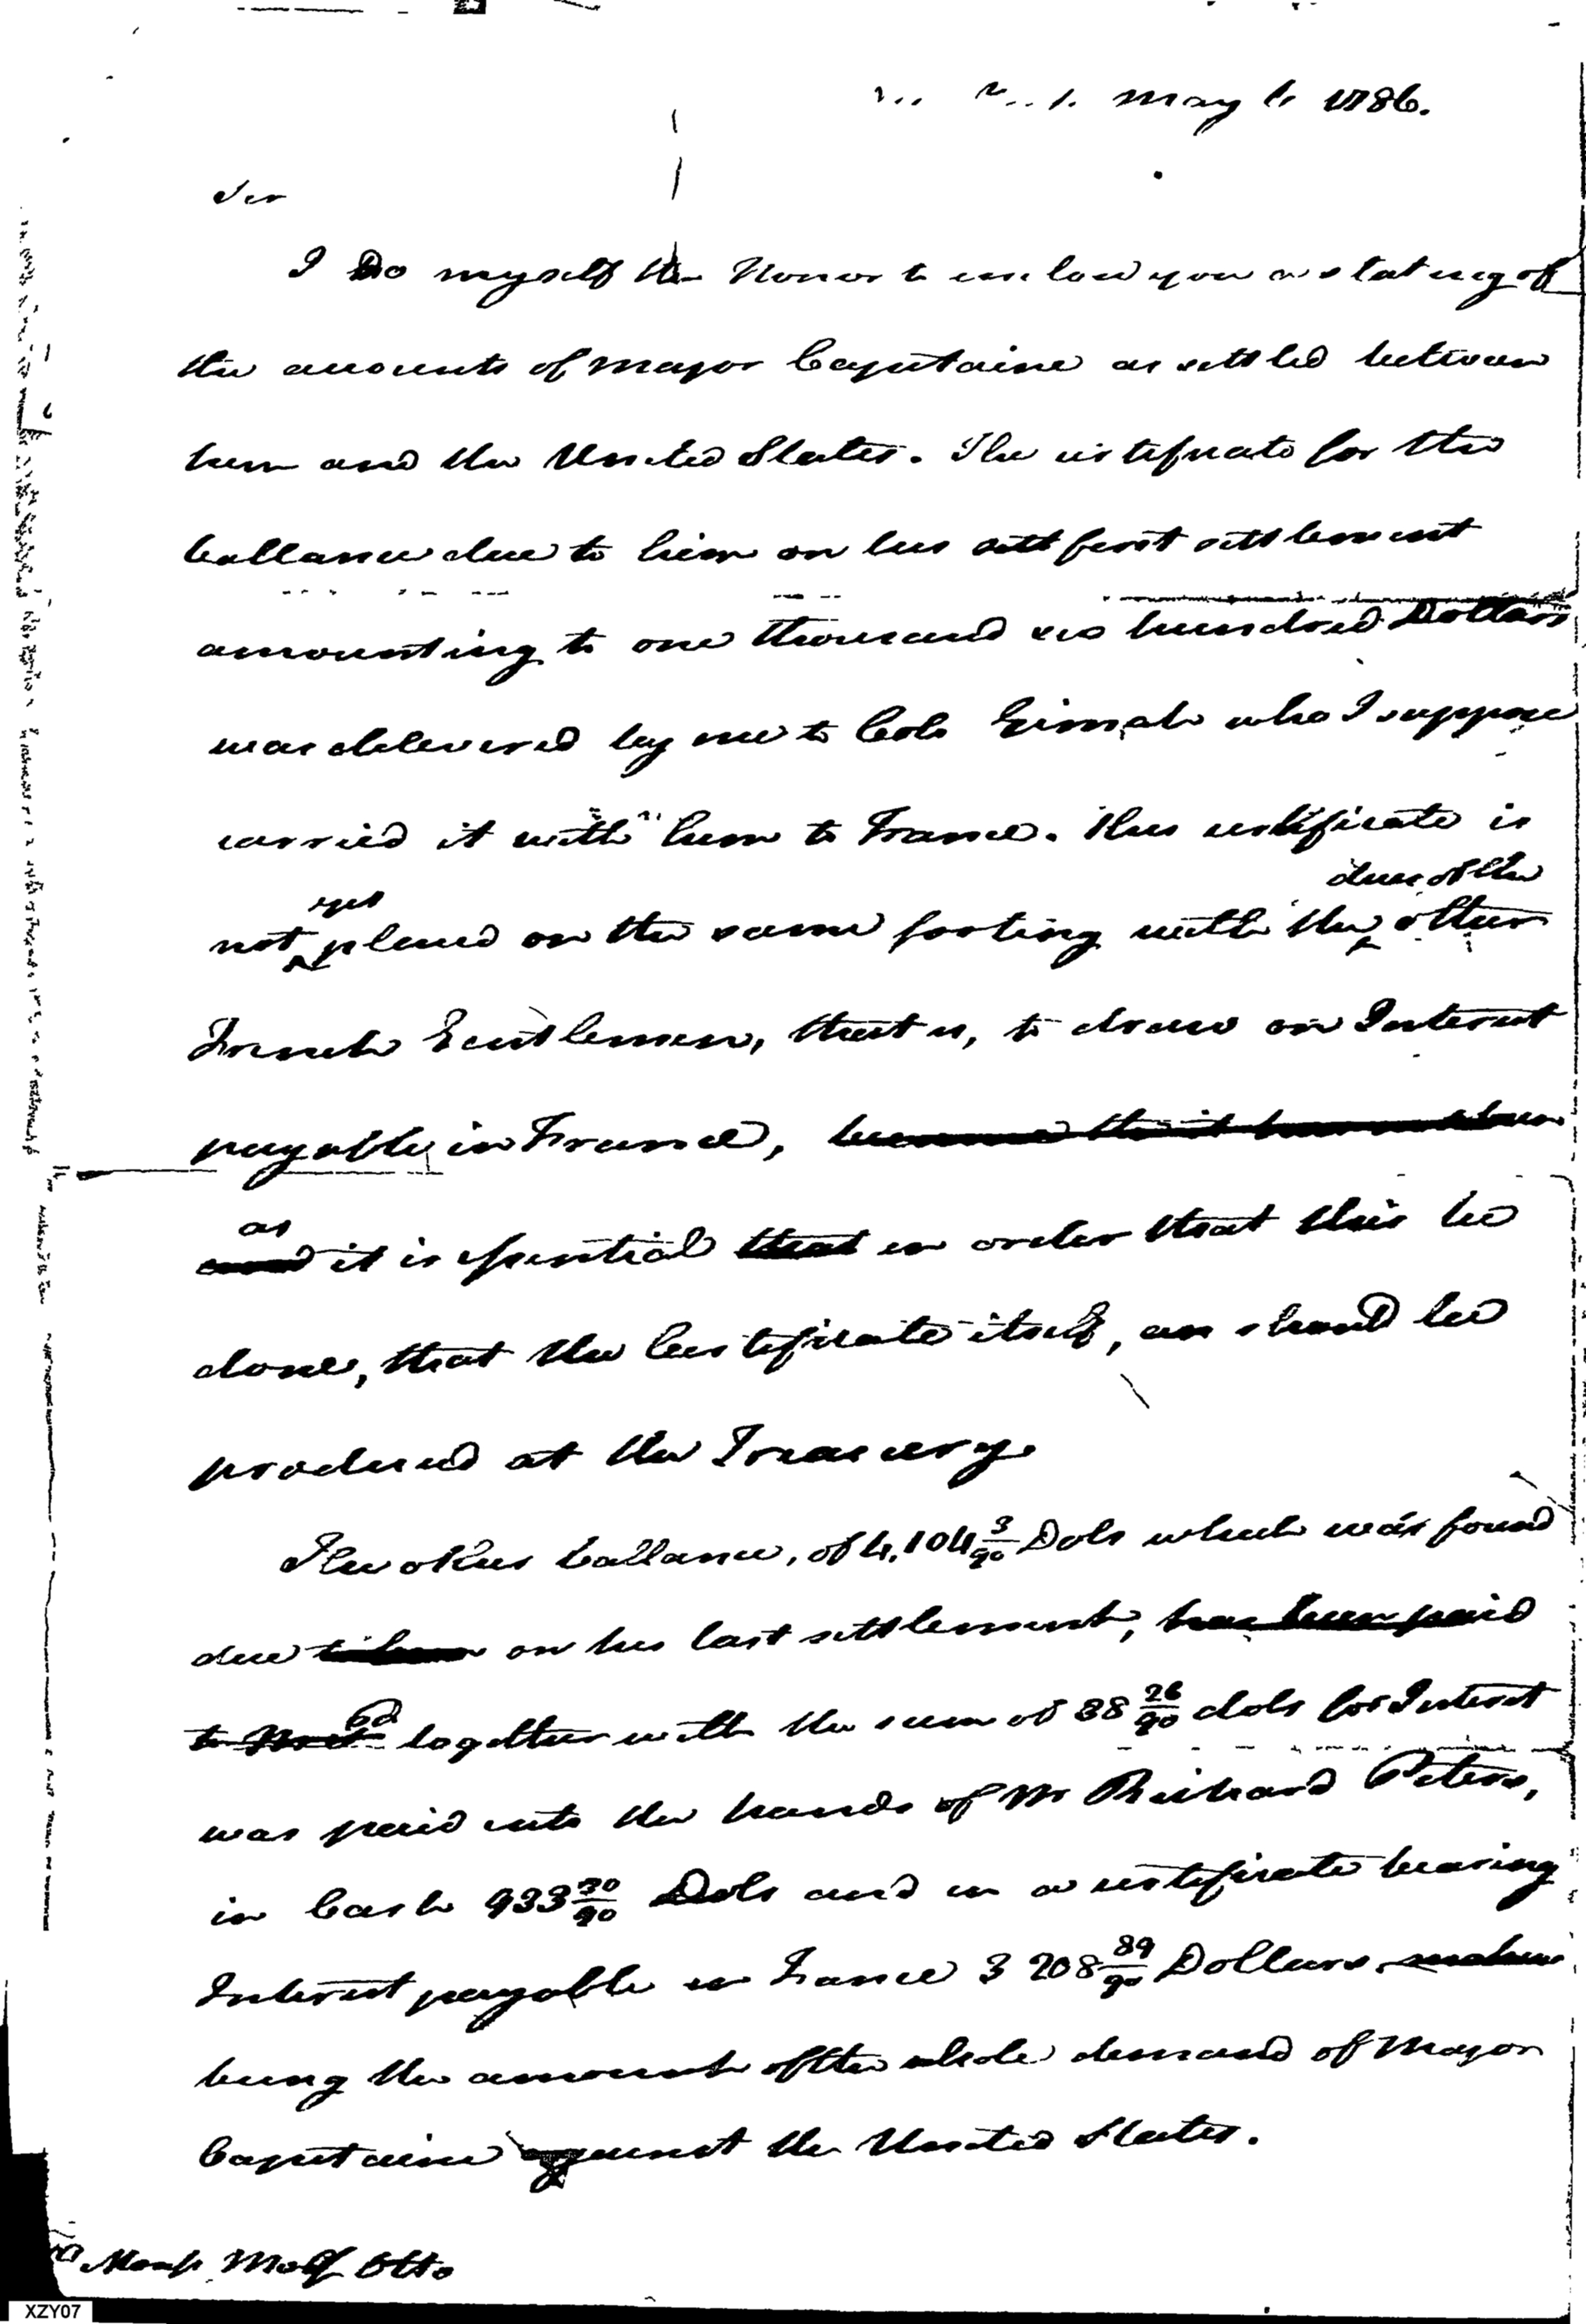 May 6 1786.
Sir
I Do myself the Honor to inclose you a stating of
the accounts of Major Capitaine as settled between
him and the United States. The certificate for the
ballance due to him on his sett first settlement
amounting to one thousand six hundred Dollars
was delivered by me to Colo Gimat who I suppose
carried it with him to France. This certificate is
yet dues of the
not placed on the same footing with the other
French Gentlemen, that is, to draw an Interest
payable in France,
as
and it is essential that in order that this be
done, that the Certificate itself, an should be
produced at the Treasury.
The other ballance, of 4,104 3/90 Dols which was found
due to him on his last settlement, has been paid
to together with the sum of 38 26/90 dols for Interest
was paid into the hands of Mr Richard Peters,
in Cash 933 30/90 Dols and in a certificate bearing
Interest payable in France 3 208 89/90 Dollars
being the amount of the whole demand of Major
Capitaine against the United States.
Otto
XZY07